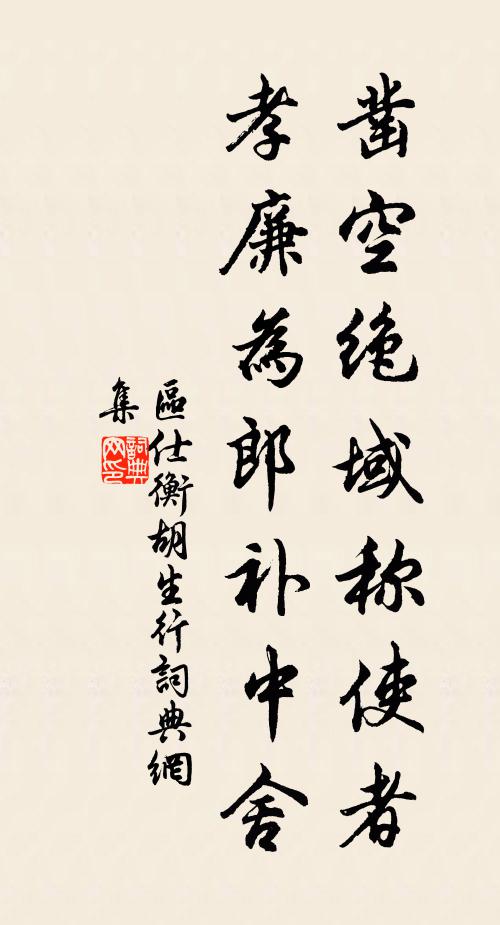 凿空绝域称使者
孝廉為郎补中舍
區仕衡胡生行詞典網
集
詞典网印